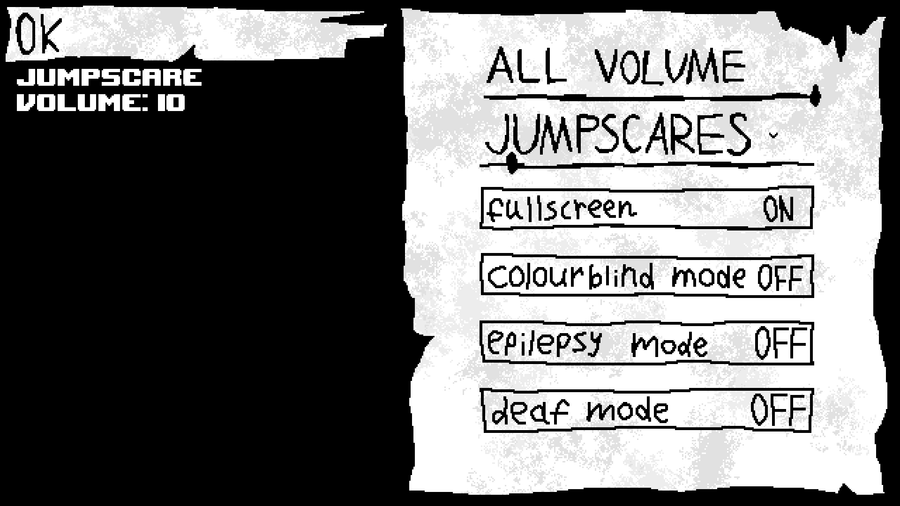 OK
JUMPSCARE
VOLUME: 10
ALL VOLUME
JUMPSCARES
fullscreen ON
colourblind mode OFF
epilepsy mode OFF
deaf mode OFF